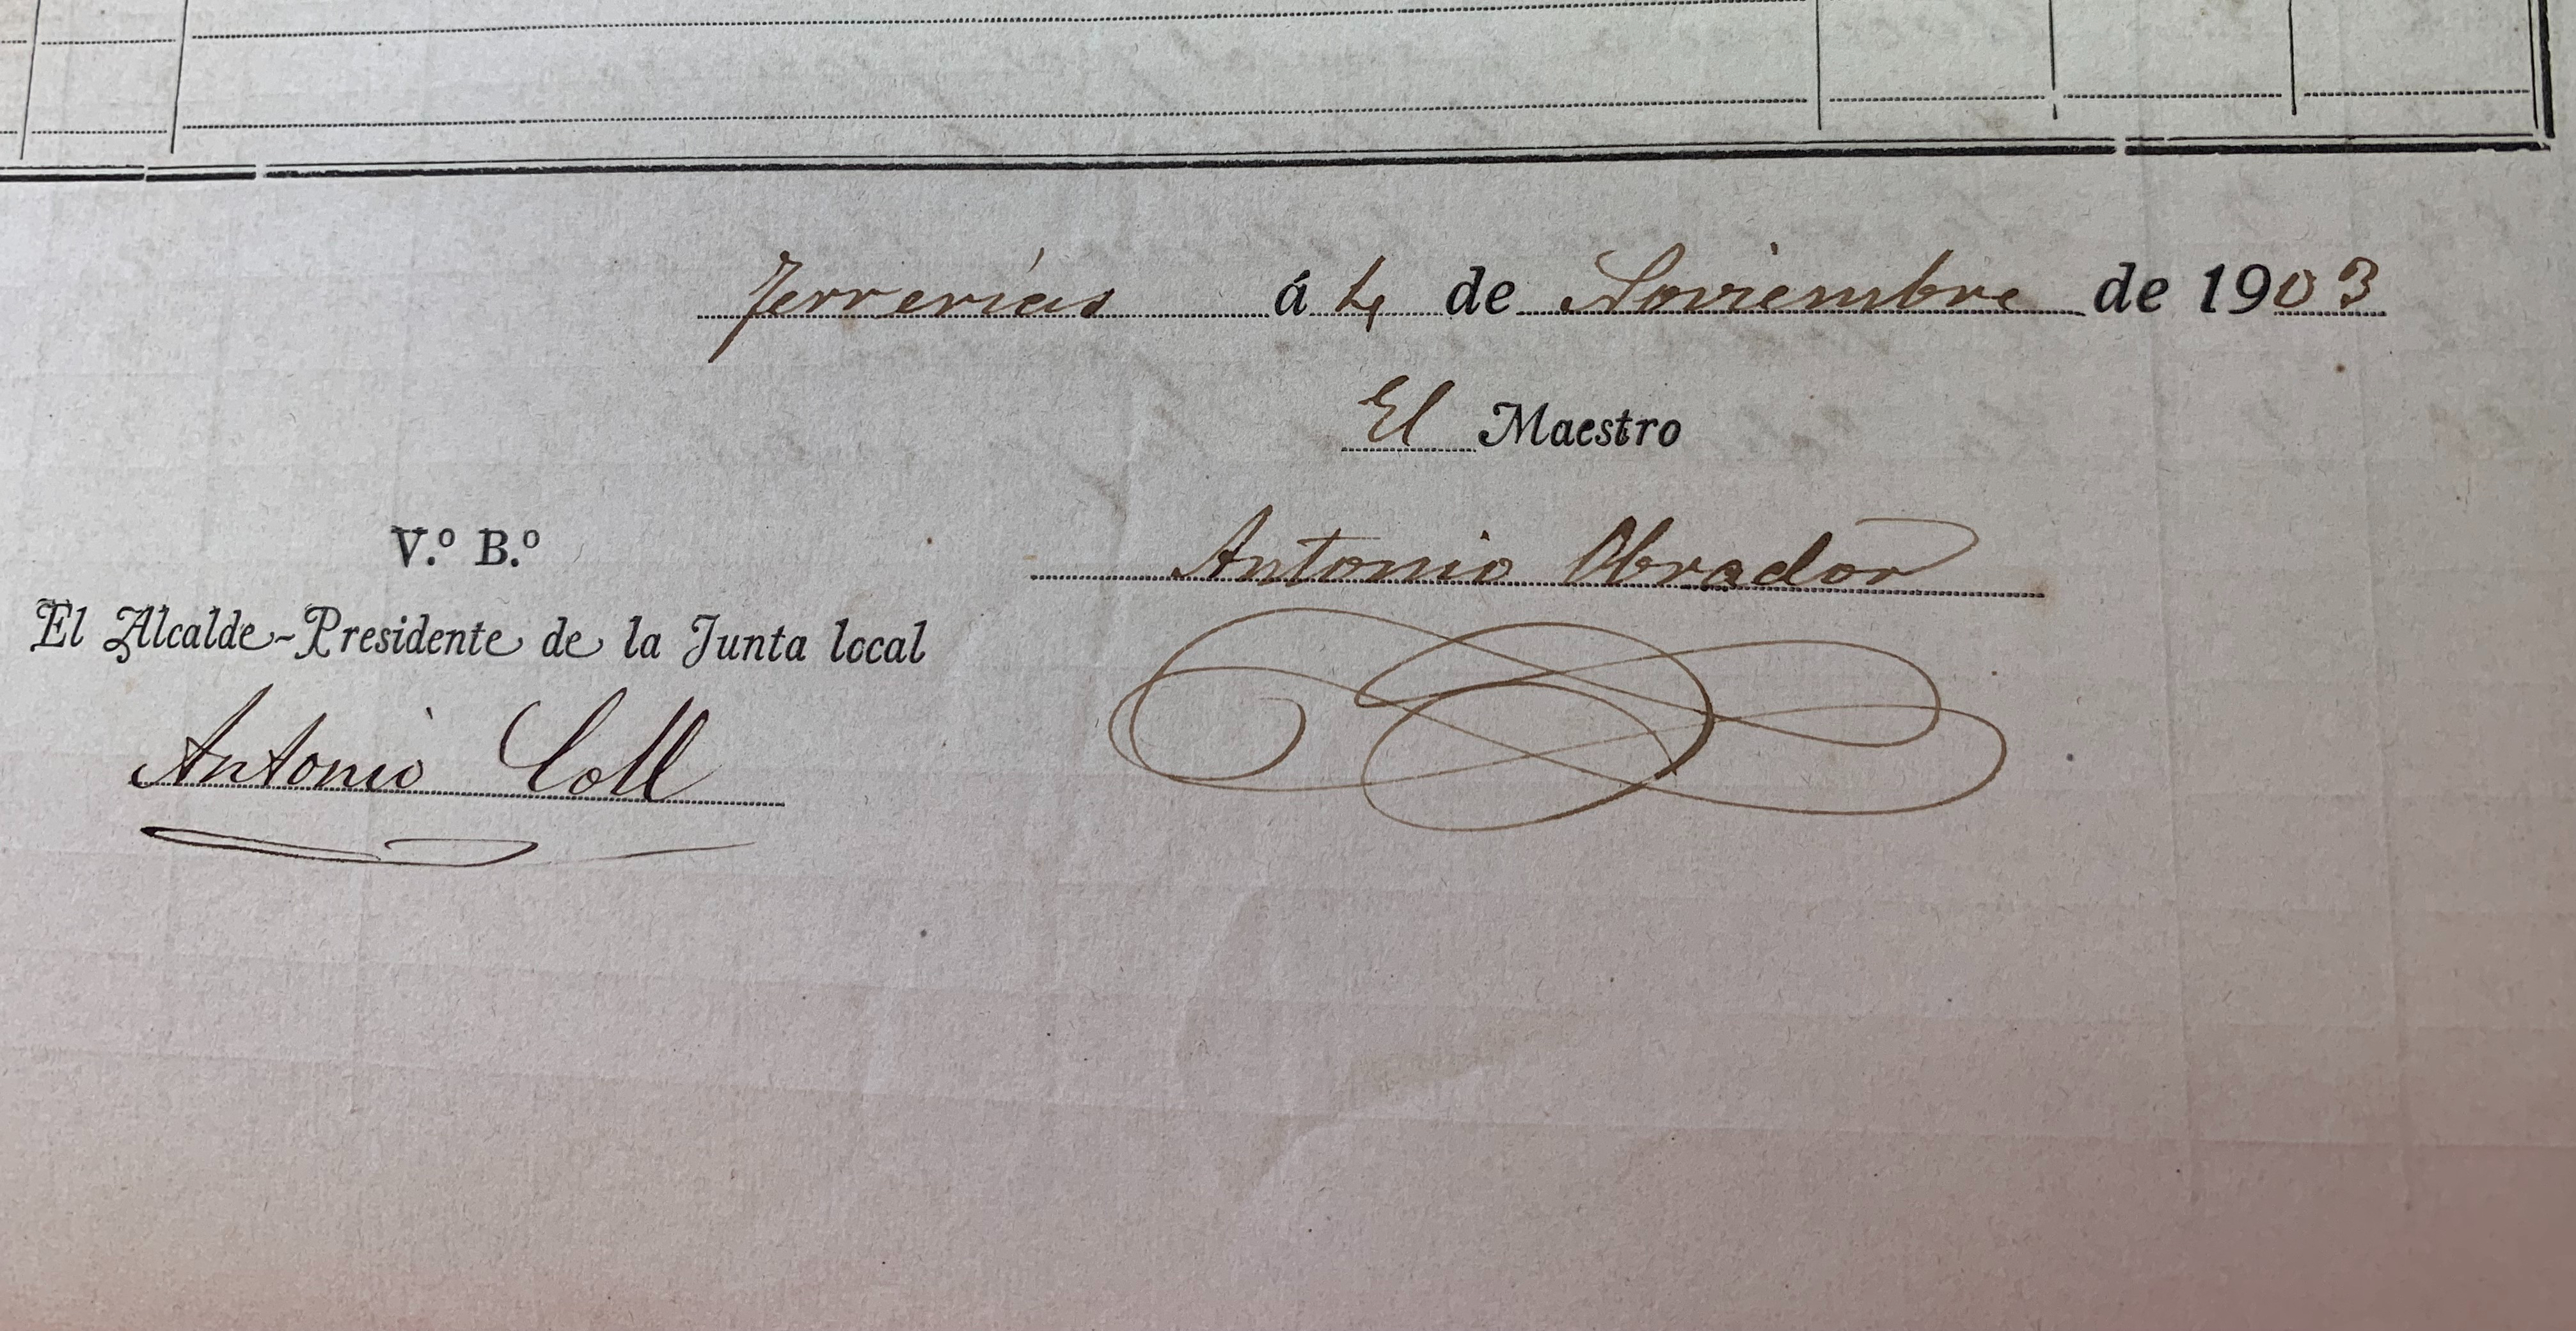 Ferrerias á 4 de Noviembre de 1903
El Maestro
Antonio Obrador
V.º B.º
El Alcalde-Presidente de la Junta local
Antonio Coll